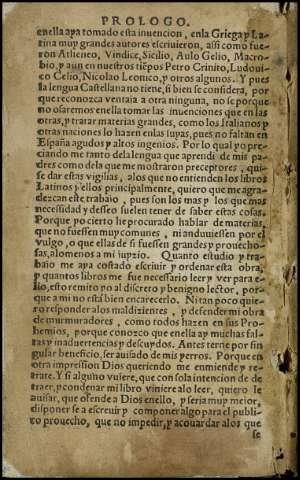 PROLOGO.
enella aya tomado esta inuencion, enla Griega y La
tina muy grandes autores escriuieron, assi como fue
ron Atheneo, Vindice, Sicilio, Aulo Gelio, Macro-
bio, y aun en nuestros tiēpos Petro Crinito, Ludoui-
co Celio, Nicolao Leonico, y otros algunos. Y pues
la lengua Castellana no tiene, si bien se considera, por
que reconozca ventaia a otra ninguna, no se porque
no osaremos enella tomar las inuenciones que en las
otras, y tratar materias grandes, como los Italianos y
otras naciones lo hazen enlas suyas, pues no faltan en
España agudos y altos ingenios. Por lo qual yo pre-
ciando me tanto dela lengua que aprendi de mis pa-
dres como dela que me mostraron preceptores, qui-
se dar estas vigilias, alos que no entienden los libros
Latinos y ellos principalmente, quiero que me agra-
dezcan este trabaio, pues son los mas y los que mas
necessidad y desseo suelen tener de saber estas cosas.
Porque yo cierto he procurado hablar de materias,
que no fuessen muy comunes, ni anduuiessen por el
vulgo, o que ellas de si fuessen grandes y prouecho-
sas, alomenos a mi iuyzio. Quanto estudio y tra-
baio me aya costado escriuir y ordenar esta obra,
y quantos libros me fue necessario leer y ver para e-
llo, esto remito yo al discreto y benigno lector, por-
que a mi no está bien encarecerlo. Ni tan poco quie-
ro responder alos maldizientes, y defender mi obra
de murmuradores, como todos hazen en sus Pro-
hemios, porque conozco que en ella ay muchas fal-
tas y inaduertencias y descuydos. Antes terne por sin
gular beneficio, ser auisado de mis yerros. Porque en
otra impression Dios queriendo me enmiende y re-
trate. Y si alguno vuiere, que con sola intencion de de
traer, y condenar mi libro viniere alo leer, quiero le
auisar, que ofende a Dios enello, y seria muy meior,
disponer se a escreuir y componer algo para el publi
co prouecho, que no impedir, y acouardar alos que
se